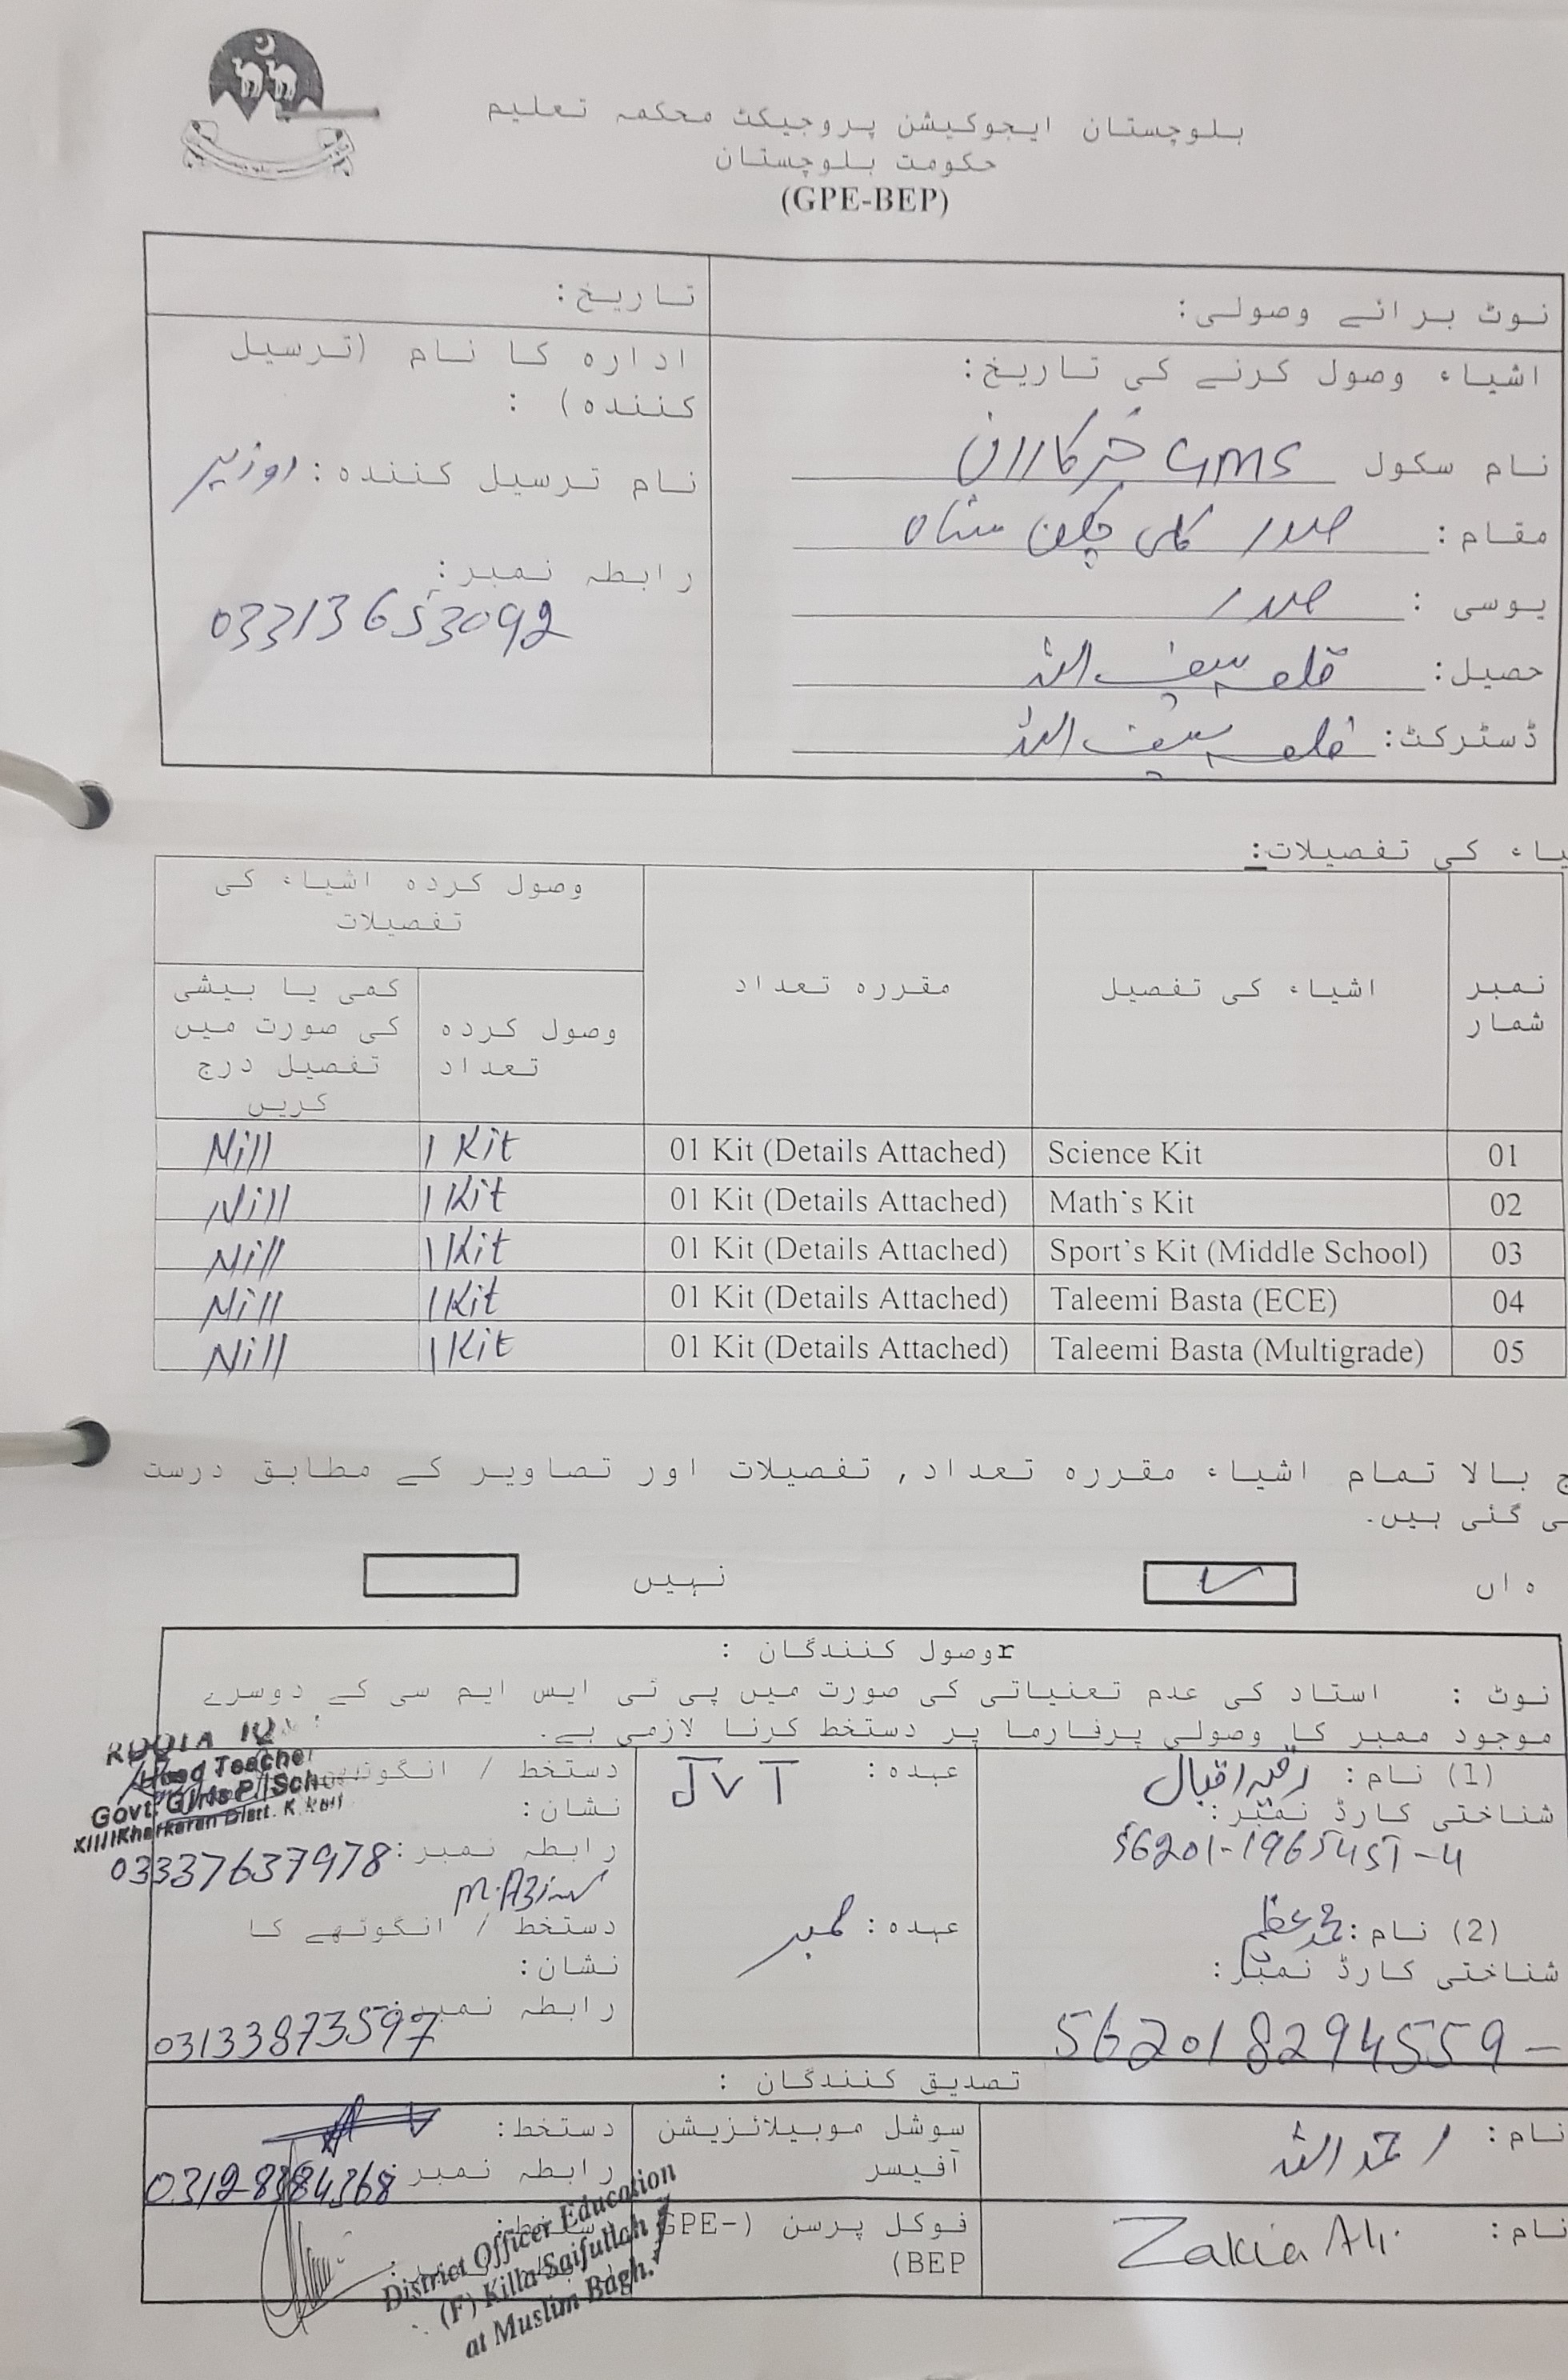 بلوچستان ایجوکیشن پروجیکٹ محکمہ تعلیم
حکومت بلوچستان
(GPE-BEP)
نوٹ برائے وصولی:
تاریخ:
اشیاء وصول کرنے کی تاریخ:
نام سکول GMS خرکاران
مقام: صدر کلی چکن شاہ
یوسی : صدر
حصیل: قلعہ سیف اللہ
ڈسٹرکٹ: قلعہ سیف اللہ
ادارہ کا نام (ترسیل
کنندہ) :
نام ترسیل کنندہ:
رابطہ نمبر:
03313653092
یاء کی تفصیلات:
نمبر شمار
اشیاء کی تفصیل
مقررہ تعداد
وصول کردہ اشیاء کی تفصیلات
وصول کردہ تعداد
کمی یا بیشی کی صورت میں تفصیل درج کریں
01 Science Kit 01 Kit (Details Attached) 1 Kit Nill
02 Math's Kit 01 Kit (Details Attached) 1 Kit Nill
03 Sport's Kit (Middle School) 01 Kit (Details Attached) 1 Kit Nill
04 Taleemi Basta (ECE) 01 Kit (Details Attached) 1 Kit Nill
05 Taleemi Basta (Multigrade) 01 Kit (Details Attached) 1 Kit Nill
ج بالا تمام اشیاء مقررہ تعداد, تفصیلات اور تصاویر کے مطابق درست
ی گئی ہیں.
ہاں ✓ نہیں
rوصول کنندگان :
نوٹ : استاد کی عدم تعنیاتی کی صورت میں پی ٹی ایس ایم سی کے دوسرے
موجود ممبر کا وصولی پرفارما پر دستخط کرنا لازمی ہے.
(1) نام: رقیہ اقبال
شناختی کارڈ نمبر:
56201-1965451-4
عہدہ: JVT
دستخط / انگوٹھے
نشان:
Head Teacher
Govt: Girls P/School
رابطہ نمبر: 03337637978
M.Azim
(2) نام: محمد عظیم
شناختی کارڈ نمبر:
562018294559-
عہدہ: ممبر
دستخط / انگوٹھے کا
نشان:
رابطہ نمبر: 03133873597
تصدیق کنندگان :
نام: احمد اللہ
سوشل موبیلائزیشن
آفیسر
دستخط:
رابطہ نمبر:
نام: Zakia Ali
فوکل پرسن (GPE-
BEP)
District Officer Education
(F) Killa Saifullah
at Muslim Bagh.